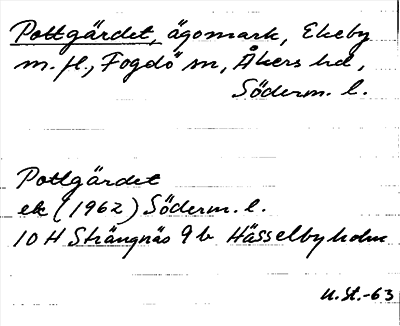 Pottgärdet, ägomark, Ekeby
m. fl., Fogdö sn, Åkers hd,
Söderm. l.
Pottgärdet
ek (1962) Söderm. l.
10 H Strängnäs 9 b Hässelbyholm
U.St.-63